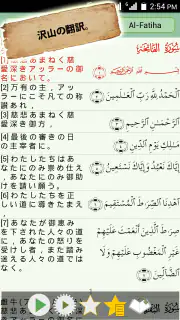 2:54 PM
沢山の翻訳。
Al-Fatiha
سُورَةُ الفَاتِحَةِ
[1]慈悲あまねく慈
愛深きアッラーの御
名において。
[2]万有の主,アッ
ラーにこそ凡ての称
讃あれ,
الْحَمْدُ لِلَّهِ رَبِّ الْعَالَمِينَ
[3]慈悲あまねく慈
愛深き御方,
الرَّحْمَنِ الرَّحِيمِ
[4]最後の審きの日
の主宰者に。
مَالِكِ يَوْمِ الدِّينِ
[5]わたしたちはあ
なたにのみ崇め仕え
,あなたにのみ御助
けを請い願う。
إِيَّاكَ نَعْبُدُ وَإِيَّاكَ نَسْتَعِينُ
[6]わたしたちを正
しい道に導きたまえ
,
اهْدِنَا الصِّرَاطَ الْمُسْتَقِيمَ
[7]あなたが御恵み
を下された人々の道
に,あなたの怒りを
受けし者,また踏み
迷える人々の道では
なく。
صِرَاطَ الَّذِينَ أَنْعَمْتَ عَلَيْهِمْ
غَيْرِ الْمَغْضُوبِ عَلَيْهِمْ وَلَا
الضَّالِّينَ